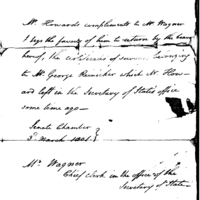 Mr Howards compliments to Mr Wagner
& begs the favour of him to return by the bearer
hereof, the certificates of survey belonging
to Mr George Reinicker which Mr How-
ard left in the Secretary of State's office
some time ago—
Senate Chamber
3d March 1801.
Mr Wagner
Chief clerk in the office of the
Secretary of State